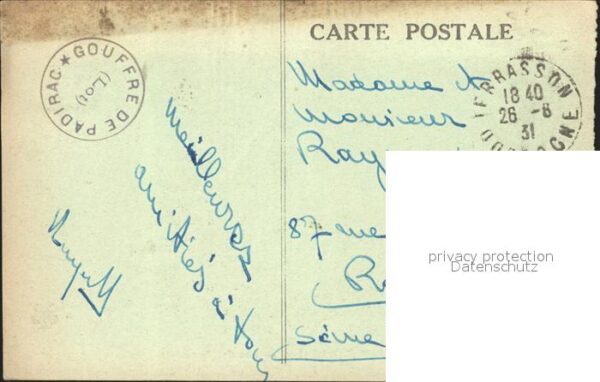 CARTE POSTALE
★ GOUFFRE DE PADIRAC
(LOT)
TERRASSON
18 40
26 -8
31
DORDOGNE
Meilleures
amitiés à tous
Madame &
Monsieur
Ray
87 rue
Seine
privacy protection
Datenschutz